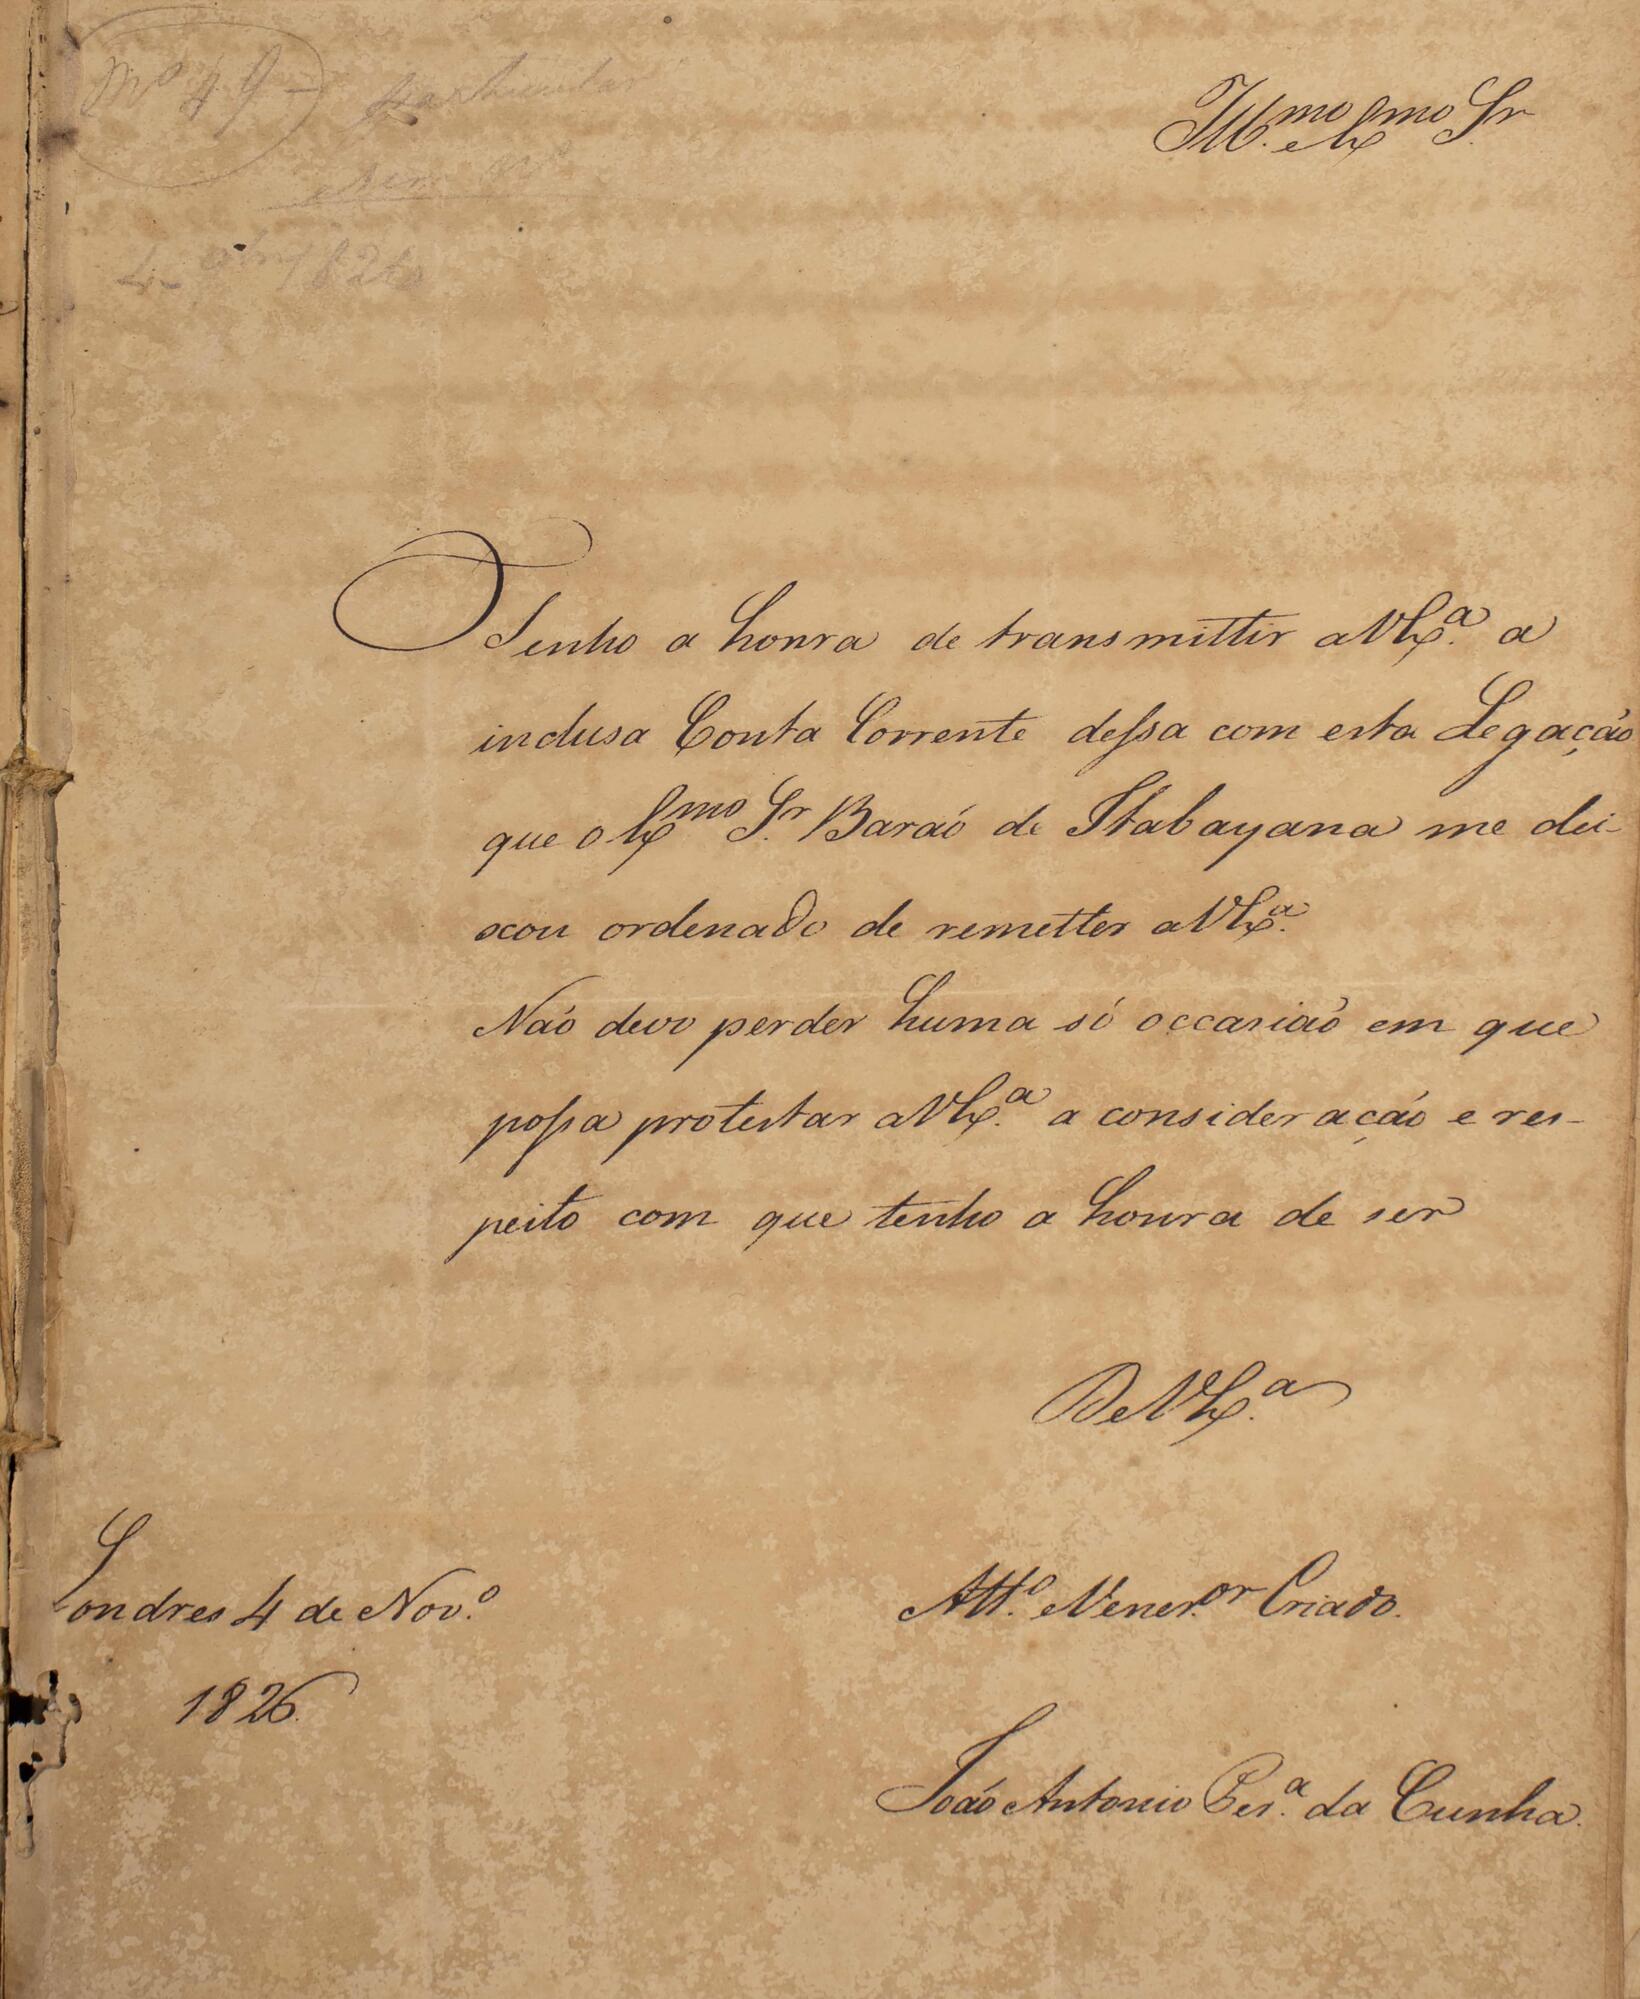 Nº 49 - particular
sem Nº
4 9br 1826
Ill.mo e Ex.mo Sr.
Tenho a honra de transmittir a V Ex.ª a
inclusa Conta Corrente dessa com esta Legação
que o Ex.mo Sr. Baraó de Itabayana me dei-
xou ordenado de remetter a V Ex.ª
Naó devo perder huma só occasiaó em que
possa protestar a V Ex.ª a consideraçaó e res-
peito com que tenho a honra de ser
De V Ex.ª
Londres 4 de Nov.º
1826.
Att.º e Vener.or Criado.
Joaó Antonio Per.ª da Cunha.